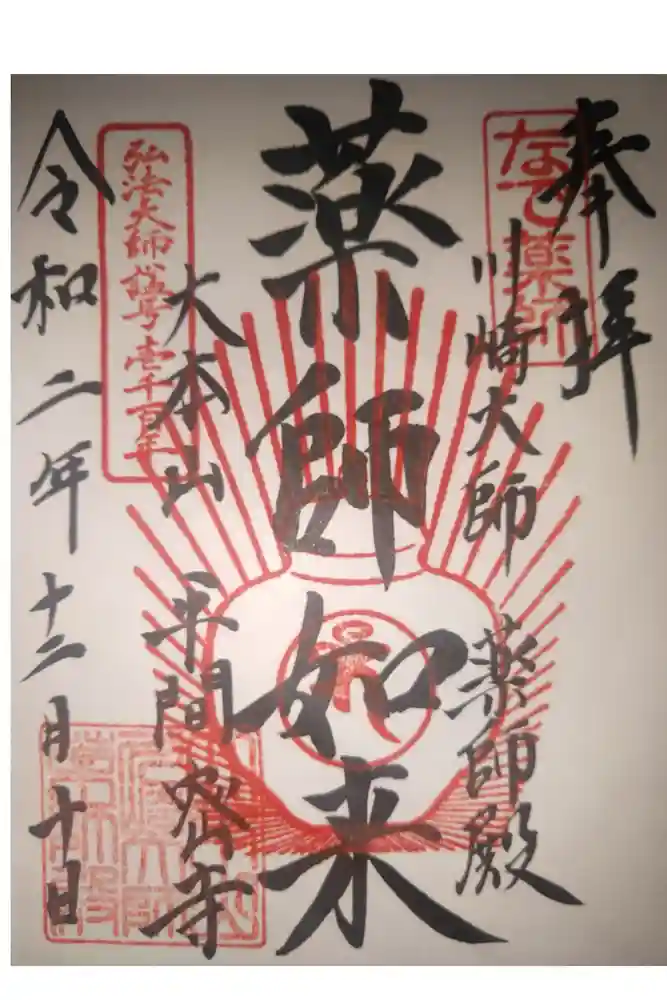 奉拝
なで薬師
川崎大師 薬師殿
薬師如来
大本山 平間寺
弘法大師諡号壱千百年
令和二年十二月十日